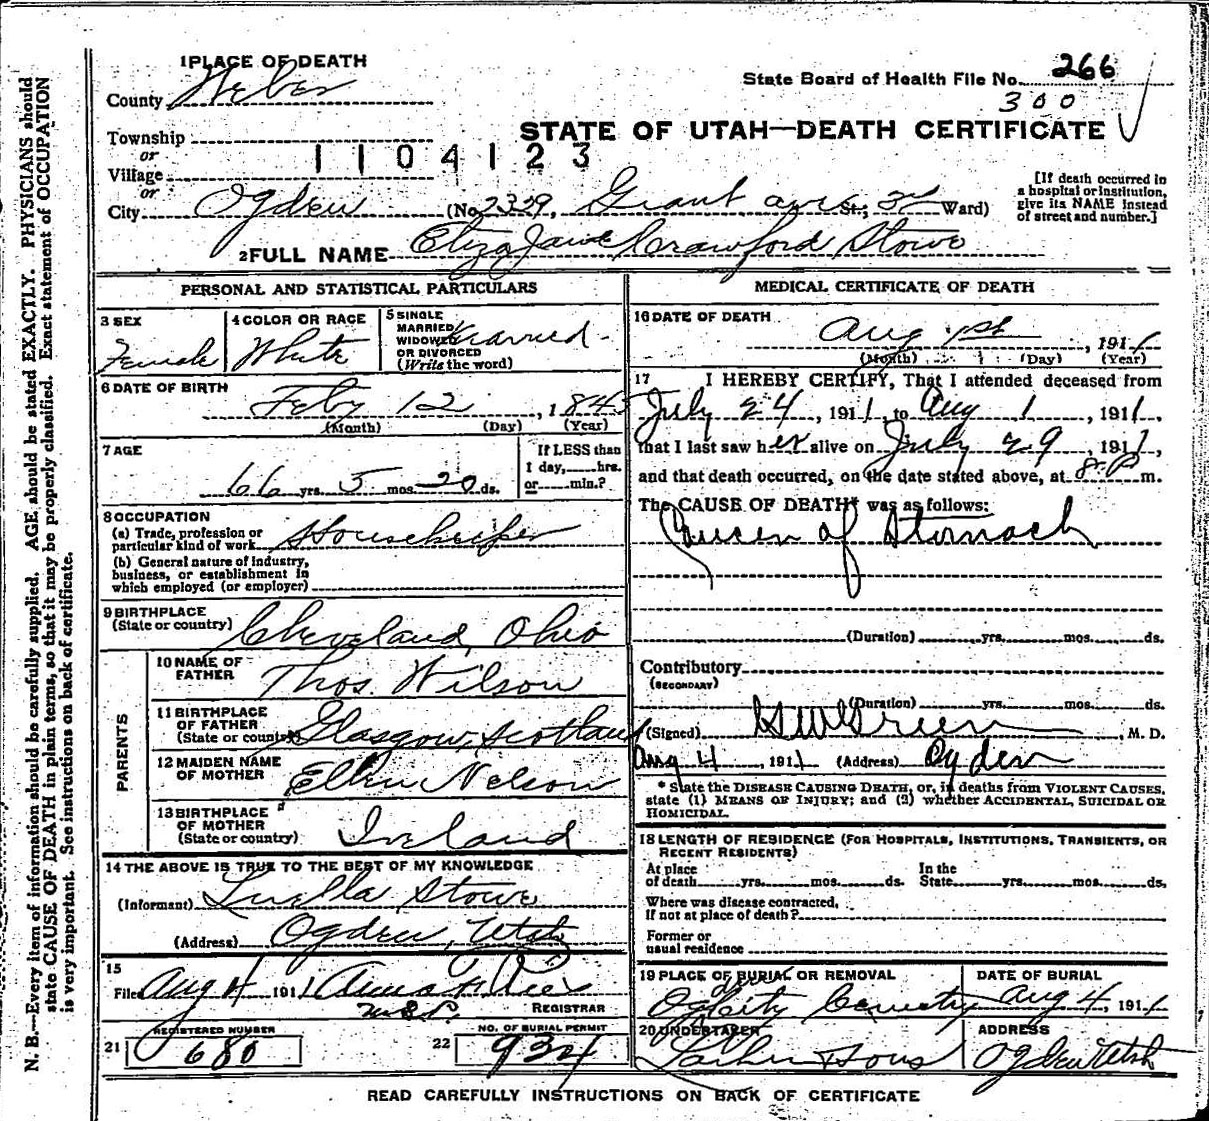 1 PLACE OF DEATH
County Weber
State Board of Health File No. 266
300
Township
or
1104123
Village
or
STATE OF UTAH—DEATH CERTIFICATE
City Ogden (No. 2339, Grant ave St.; 3rd Ward)
[If death occurred in a hospital or institution, give its NAME instead of street and number.]
2 FULL NAME Eliza Jane Crawford Stowe
PERSONAL AND STATISTICAL PARTICULARS
3 SEX
Female
4 COLOR OR RACE
White
5 SINGLE
MARRIED
WIDOWED
OR DIVORCED
(Write the word)
Married
6 DATE OF BIRTH
Feby 12, 1845
(Month) (Day) (Year)
7 AGE
66 yrs. 5 mos. 20 ds.
If LESS than
1 day, hrs.
or min.?
8 OCCUPATION
(a) Trade, profession or
particular kind of work Housekeeper
(b) General nature of industry,
business, or establishment in
which employed (or employer)
9 BIRTHPLACE
(State or country) Cleveland, Ohio
PARENTS
10 NAME OF
FATHER Thos. Wilson
11 BIRTHPLACE
OF FATHER
(State or country) Glasgow, Scotland
12 MAIDEN NAME
OF MOTHER Ellen Nelson
13 BIRTHPLACE
OF MOTHER
(State or country) Ireland
14 THE ABOVE IS TRUE TO THE BEST OF MY KNOWLEDGE
(Informant) Luella Stowe
(Address) Ogden, Utah
15
Filed Aug 4 1911
REGISTRAR
21 REGISTERED NUMBER
680
22 NO. OF BURIAL PERMIT
934
MEDICAL CERTIFICATE OF DEATH
16 DATE OF DEATH
Aug 1st, 1911
(Month) (Day) (Year)
17 I HEREBY CERTIFY, That I attended deceased from
July 24, 1911, to Aug 1, 1911,
that I last saw her alive on July 29, 1911,
and that death occurred, on the date stated above, at 8 P m.
The CAUSE OF DEATH* was as follows:
Cancer of Stomach
(Duration) yrs. mos. ds.
Contributory
(SECONDARY)
(Duration) yrs. mos. ds.
(Signed) Green, M. D.
Aug 4, 1911 (Address) Ogden
* State the DISEASE CAUSING DEATH, or, in deaths from VIOLENT CAUSES,
state (1) MEANS OF INJURY; and (2) whether ACCIDENTAL, SUICIDAL OR
HOMICIDAL.
18 LENGTH OF RESIDENCE (FOR HOSPITALS, INSTITUTIONS, TRANSIENTS, OR
RECENT RESIDENTS)
At place
of death yrs. mos. ds.
In the
State yrs. mos. ds.
Where was disease contracted,
If not at place of death?
Former or
usual residence
19 PLACE OF BURIAL OR REMOVAL
Ogden City Cemetry
DATE OF BURIAL
Aug 4, 1911
20 UNDERTAKER
Larkin & Sons
ADDRESS
Ogden Utah
READ CAREFULLY INSTRUCTIONS ON BACK OF CERTIFICATE
N. B.—Every item of information should be carefully supplied. AGE should be stated EXACTLY. PHYSICIANS should
state CAUSE OF DEATH in plain terms, so that it may be properly classified. Exact statement of OCCUPATION
is very important. See instructions on back of certificate.